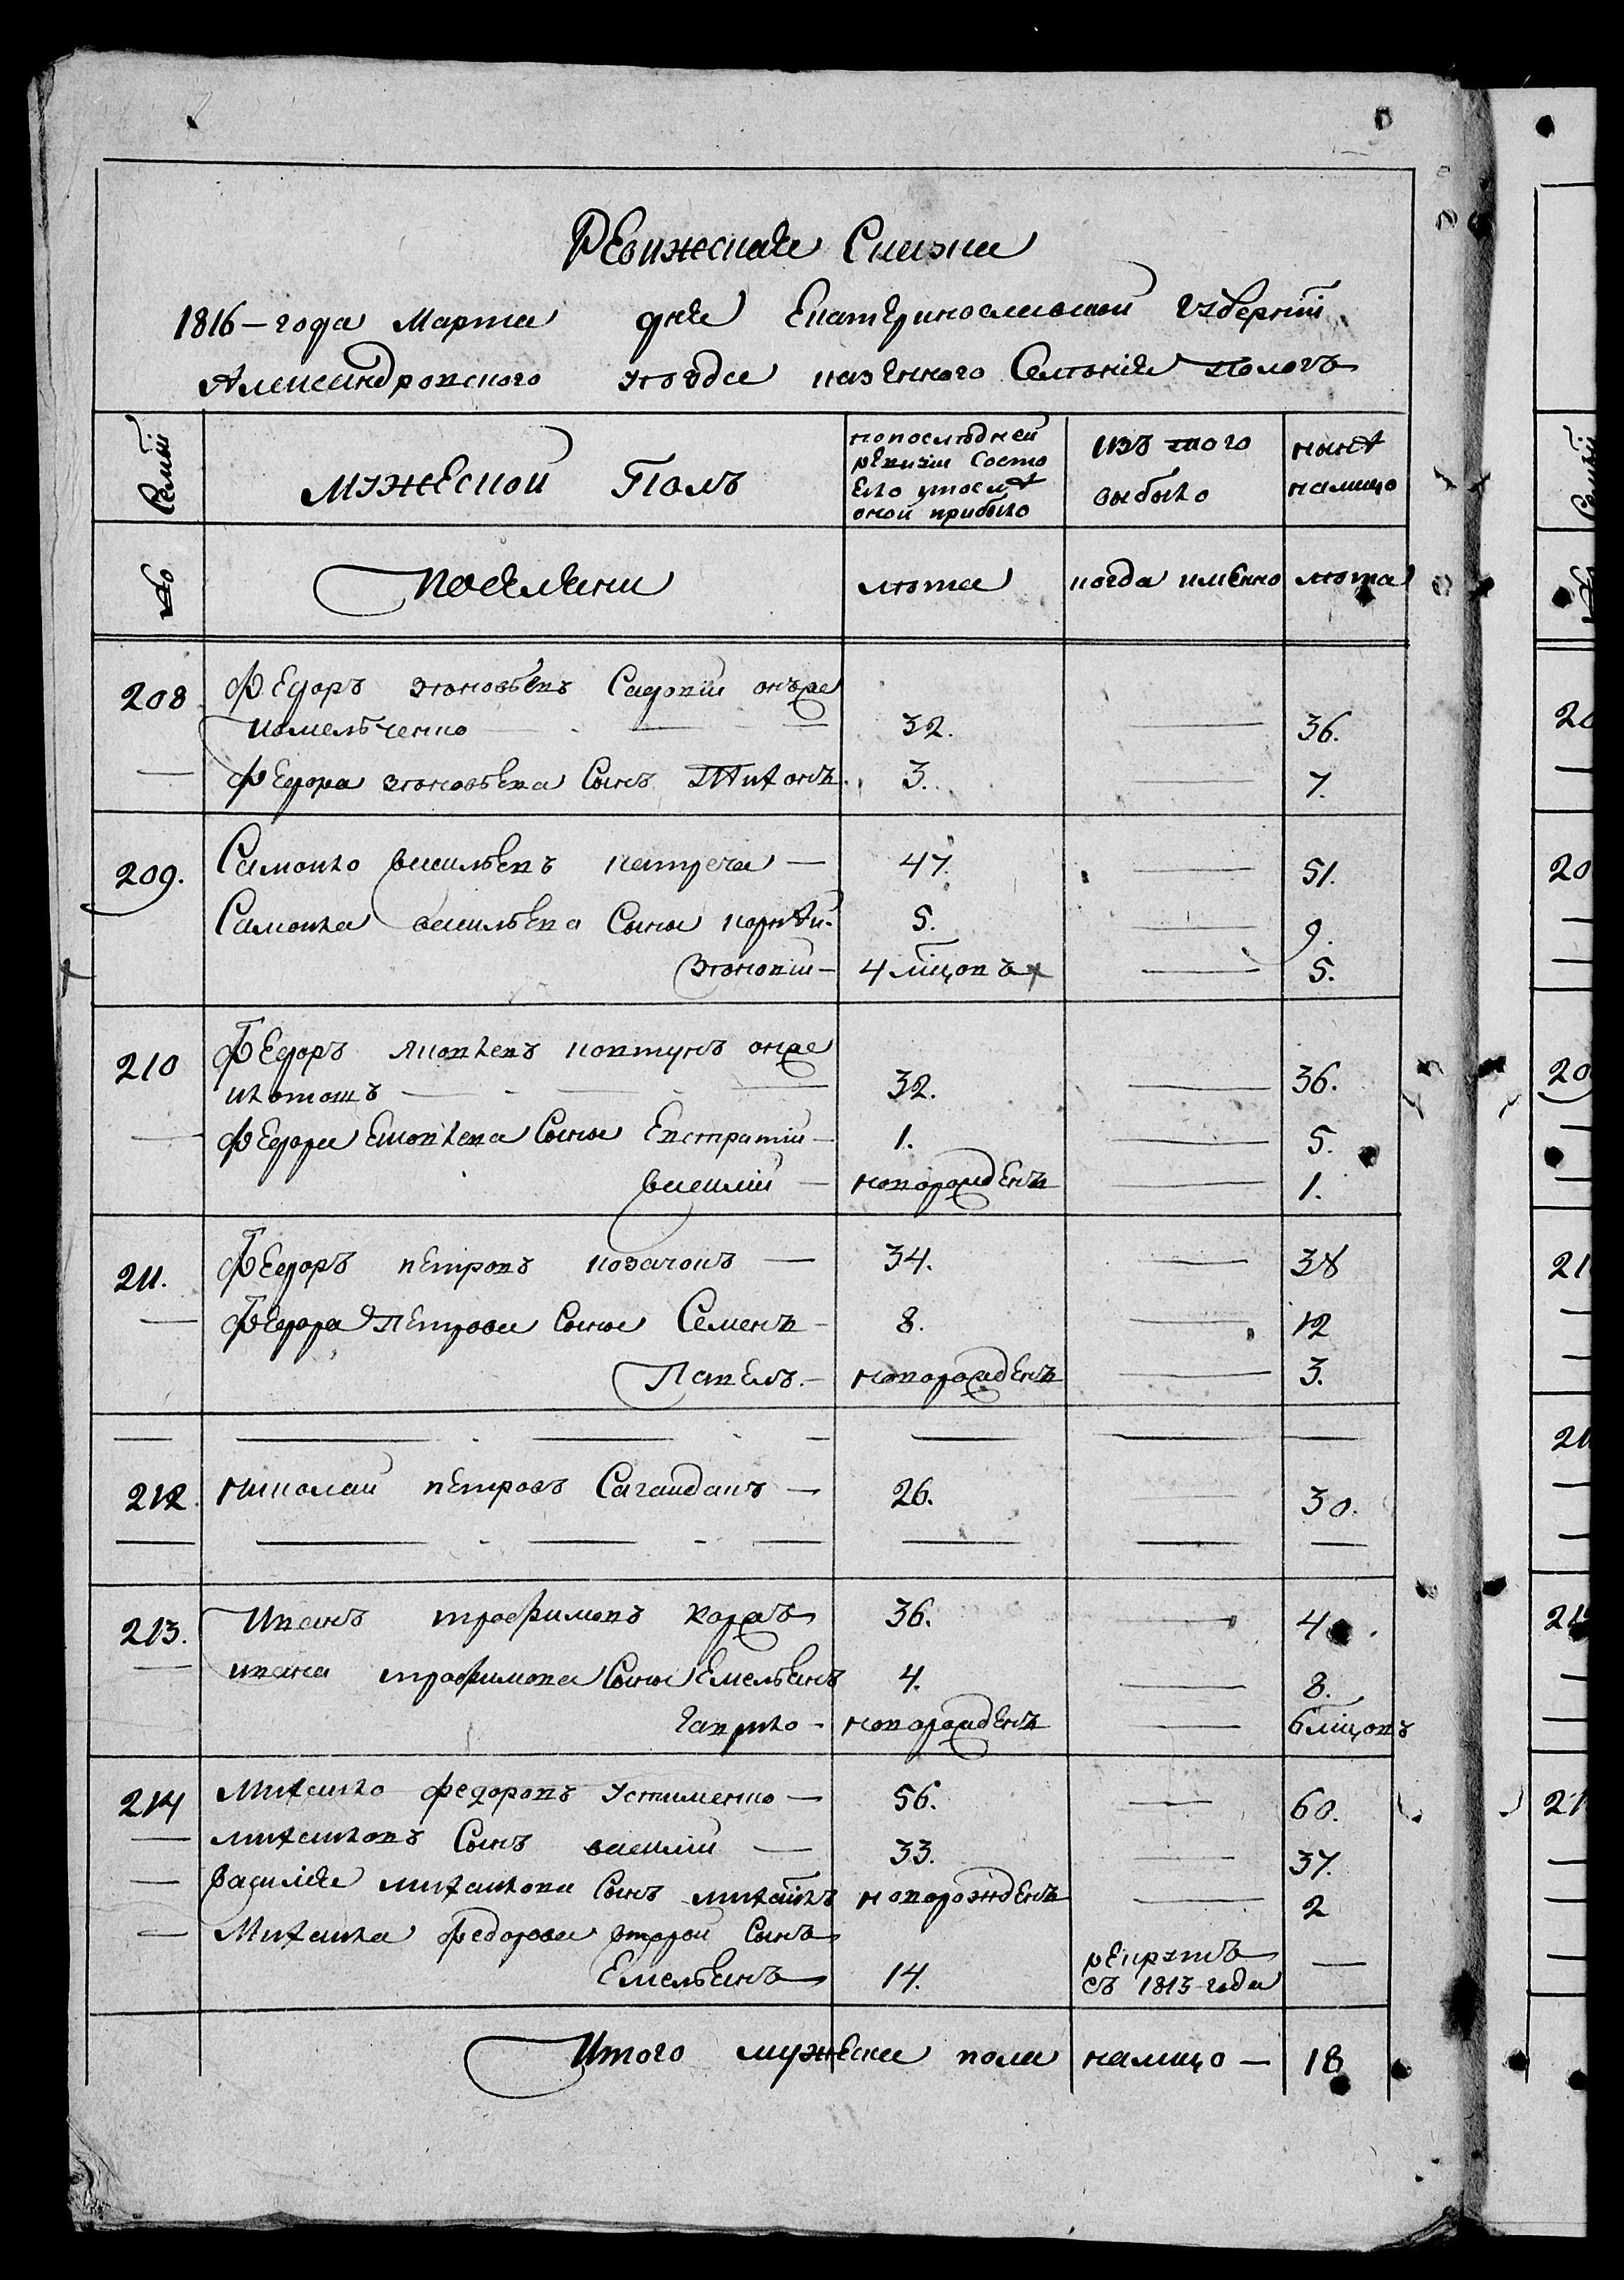 Ревижская Сказка
1816-года Марта дня Екатеринославской губерніи
Александровского уезда казенного Селенія Пологъ
Семьи
мужеской Полъ
по последней ревизіи состояло и после оной прибыло
изъ того выбыло
ныне налицо
№
поселяни
лета
когда именно
лета
208 Федоръ Зеновьевъ онже
Комельченко 32. — 36.
— Федора зеновьева Сынъ Тихонъ. 3. — 7.
209. Самойло васильевъ 47. — 51.
Самойла васильева Сыны Корней 5. — 9.
Зеновій 4 мцовъ — 5.
210 Федоръ Яковлевъ Ковтунъ онже
32. — 36.
— Федора Ековлева Сыны Евстратій 1. — 5.
василій — новорожденъ — 1.
211. Федоръ петровъ козачокъ — 34. — 38
— Федора Петрова Сыны Семенъ 8. — 12
Павелъ. — новорожденъ — 3.
212. Николай петровъ Сагайдакъ — 26. — 30.
213. Иванъ трофимовъ Коржъ 36. — 4
— ивана трофимова Сыны Емельянъ 4. — 8.
Гаврило — новорожденъ — 6 мцовъ
214 Михайло федоровъ Устименко — 56. — 60.
— михайловъ Сынъ василій — 33. — 37.
— Василія михайлова Сынъ михайлъ новорожденъ — 2
— Михайла федорова второй Сынъ
Емельянъ 14. рекрутъ съ 1813 года —
Итого мужеска пола налицо — 18